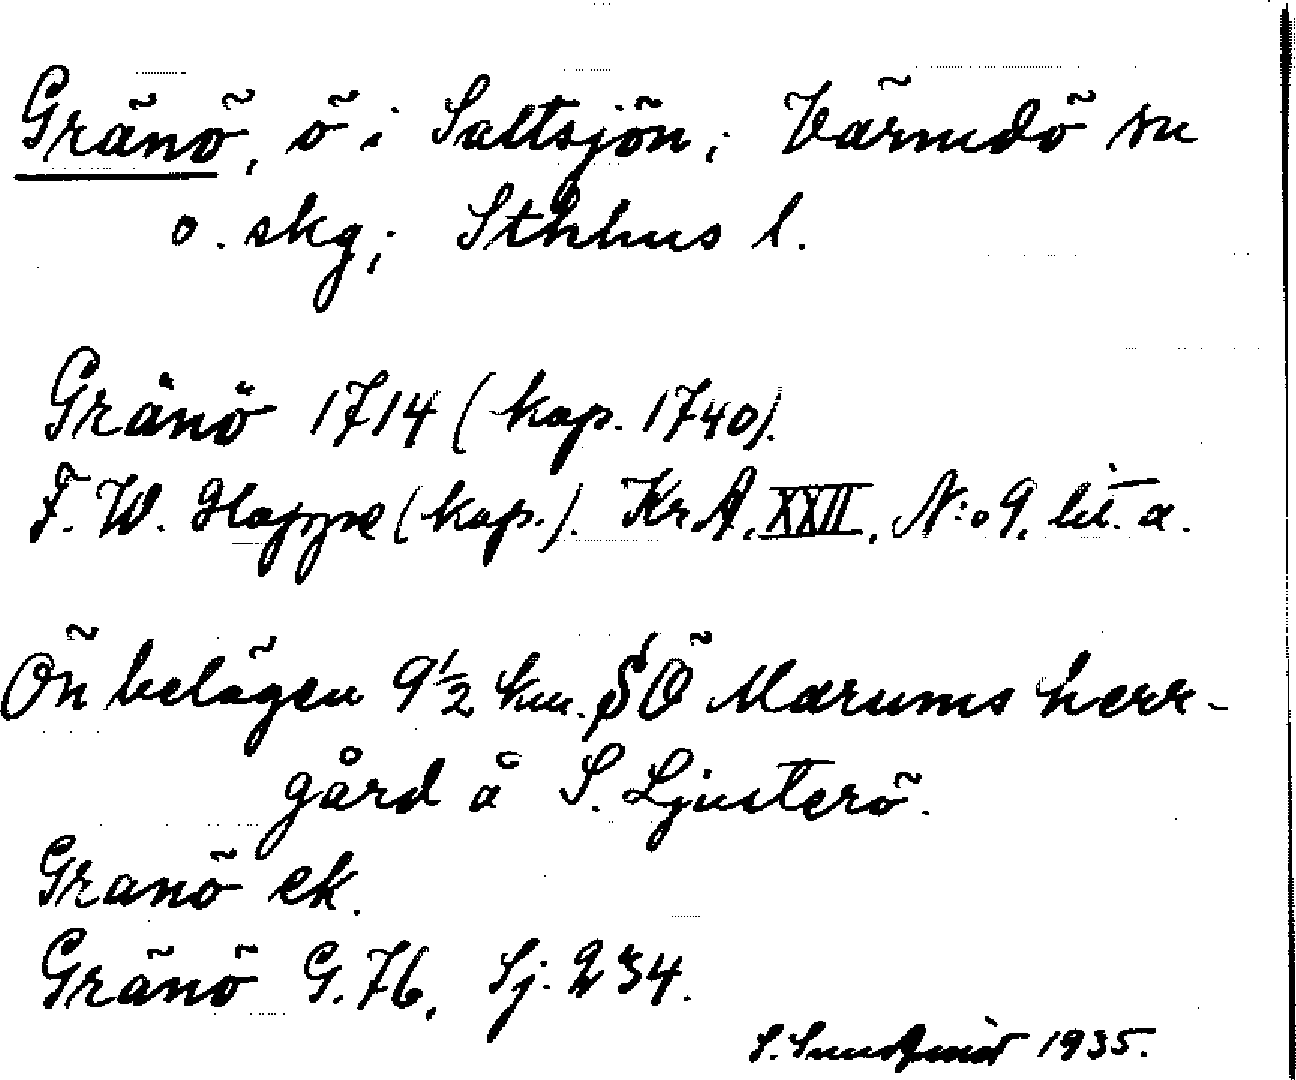 Gränö, ö i Saltsjön; Värmdö sn
o. skg; Sthhus l.
Gränö 1714 (kop. 1740).
F. W. Hoppe (kop.). Kr A. XXII, N:o 9, lit. a.
Ön belägen 9 1/2 km. SÖ Marums herr-
gård å S. Ljusterö.
Granö ek.
Gränö G. 76, Sj. 234.
S. 1935.